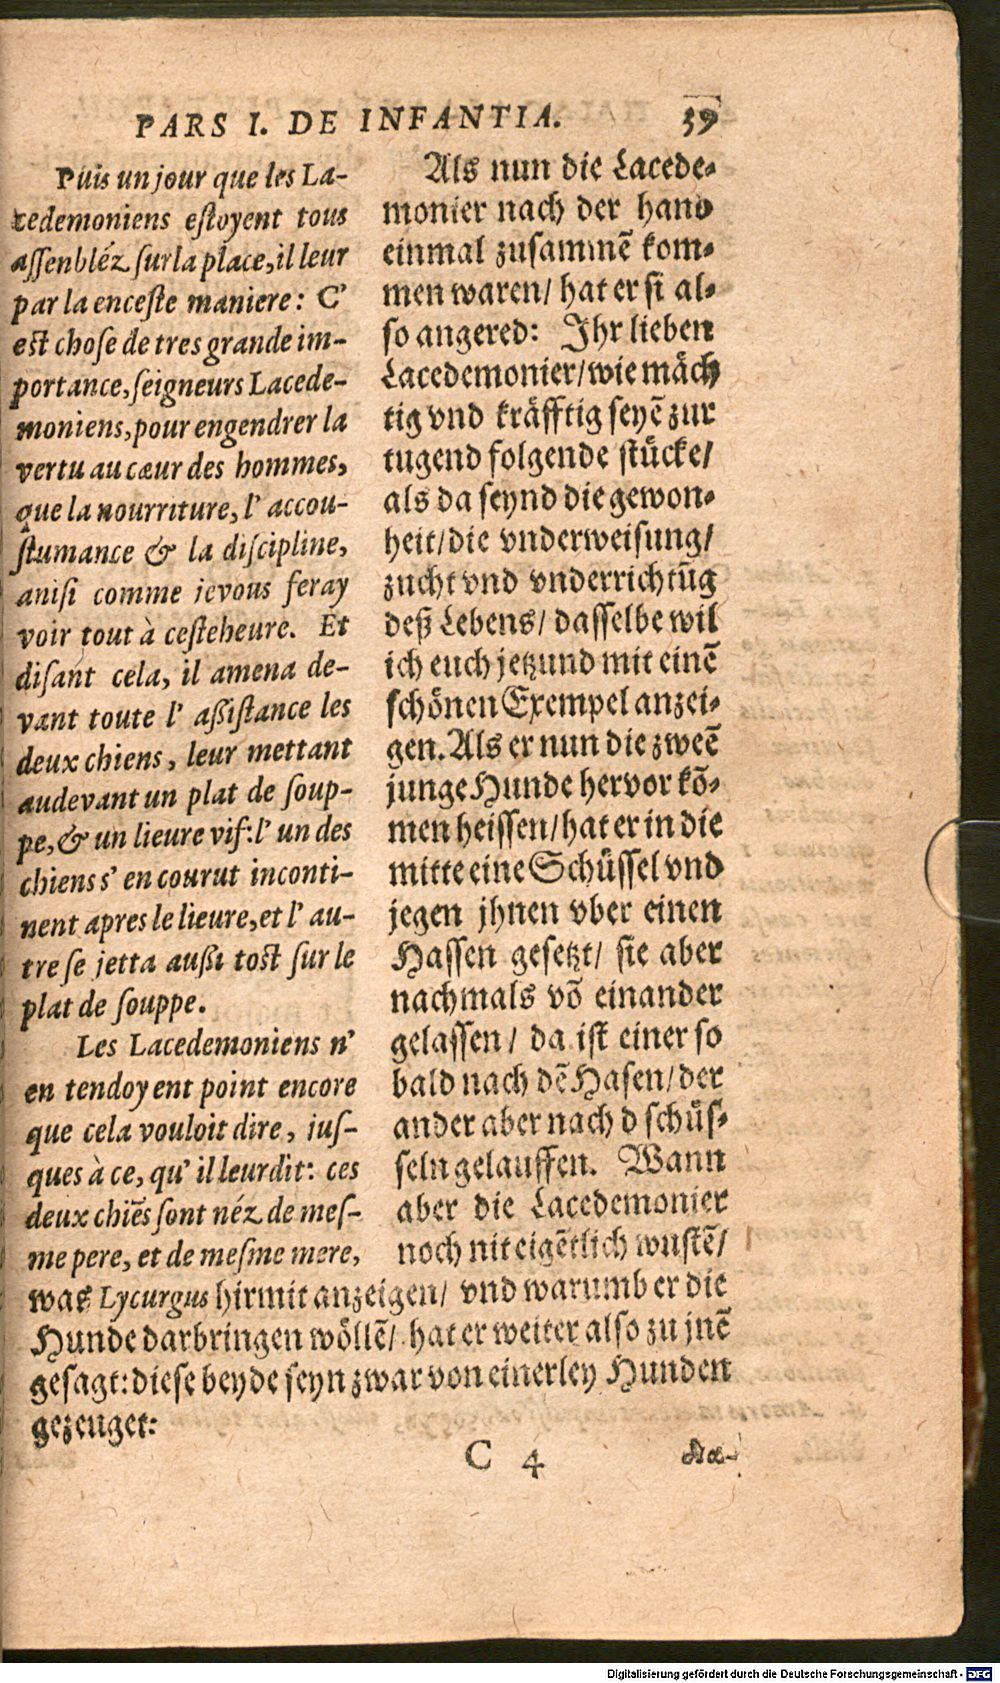 PARS I. DE INFANTIA. 39
Puis un jour que les La-
cedemoniens eſtoyent tous
aſſenbléz ſur la place, il leur
par la enceſte maniere: C'
eſt choſe de tres grande im-
portance, ſeigneurs Lacede-
moniens, pour engendrer la
vertu au cœur des hommes,
que la nourriture, l' accou-
ſtumance & la diſcipline,
anisi comme je vous feray
voir tout à ceſteheure. Et
diſant cela, il amena de-
vant toute l' aßiſtance les
deux chiens, leur mettant
audevant un plat de ſoup-
pe, & un lieure vif: l' un des
chiens s' en courut inconti-
nent apres le lieure, et l' au-
tre se jetta außi toſt ſur le
plat de ſouppe.
Les Lacedemoniens n'
en tendoyent point encore
que cela vouloit dire, juſ-
ques à ce, qu' il leur dit: ces
deux chiẽs ſont néz de meſ-
me pere, et de meſme mere,
Als nun die Lacede-
monier nach der hand
einmal zuſammẽ kom-
men waren/ hat er ſi al-
ſo angered: Ihr lieben
Lacedemonier/ wie mäch
tig vnd kräfftig ſeyẽ zur
tugend folgende ſtücke/
als da ſeynd die gewon-
heit/ die vnderweiſung/
zucht vnd vnderrichtũg
deß Lebens/ daſſelbe wil
ich euch jetzund mit einẽ
ſchönen Exempel anzei-
gen. Als er nun die zweẽ
junge Hunde hervor kõ-
men heiſſen/ hat er in die
mitte eine Schüſſel vnd
jegen jhnen vber einen
Haſſen geſetzt/ ſie aber
nachmals võ einander
gelaſſen/ da iſt einer ſo
bald nach dẽ Haſen/ der
ander aber nach d ſchüſ-
ſeln gelauffen. Wann
aber die Lacedemonier
noch nit eigẽtlich wuſtẽ/
was Lycurgus hirmit anzeigen/ vnd warumb er die
Hunde darbringen wöllẽ/ hat er weiter alſo zu jnẽ
geſagt: dieſe beyde ſeyn zwar von einerley Hunden
gezeuget:
C 4
Digitalisierung gefördert durch die Deutsche Forschungsgemeinschaft - DFG